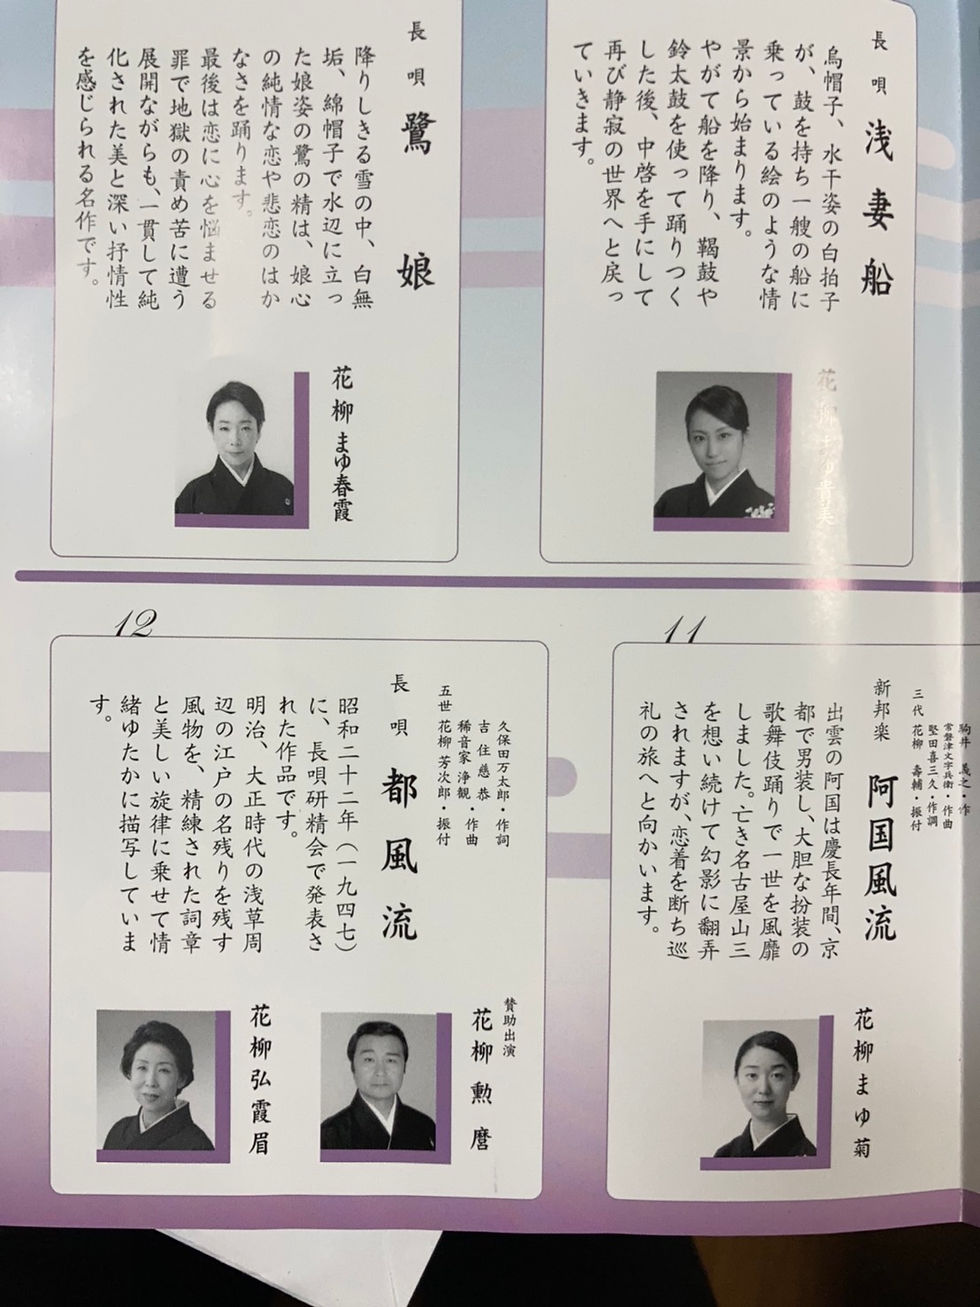 長唄
浅妻船
烏帽子、水干姿の白拍子
が、鼓を持ち一艘の船に
乗っている絵のような情
景から始まります。
やがて船を降り、鞨鼓や
鈴太鼓を使って踊りつく
した後、中啓を手にして
再び静寂の世界へと戻っ
ていきます。
花柳まゆ貴美
長唄
鷺娘
降りしきる雪の中、白無
垢、綿帽子で水辺に立っ
た娘姿の鷺の精は、娘心
の純情な恋や悲恋のはか
なさを踊ります。
最後は恋に心を悩ませる
罪で地獄の責め苦に遭う
展開ながらも、一貫して純
化された美と深い抒情性
を感じられる名作です。
花柳まゆ春霞
11
駒井義之・作
常磐津文字兵衛・作曲
堅田喜三久・作調
三代 花柳壽輔・振付
新邦楽
阿国風流
出雲の阿国は慶長年間、京
都で男装し、大胆な扮装の
歌舞伎踊りで一世を風靡
しました。亡き名古屋山三
を想い続けて幻影に翻弄
されますが、恋着を断ち巡
礼の旅へと向かいます。
花柳まゆ菊
12
久保田万太郎・作詞
吉住慈恭
稀音家浄観・作曲
五世 花柳芳次郎・振付
長唄
都風流
昭和二十二年（一九四七）
に、長唄研精会で発表さ
れた作品です。
明治、大正時代の浅草周
辺の江戸の名残りを残す
風物を、精練された詞章
と美しい旋律に乗せて情
緒ゆたかに描写していま
す。
賛助出演
花柳勲麿
花柳弘霞眉